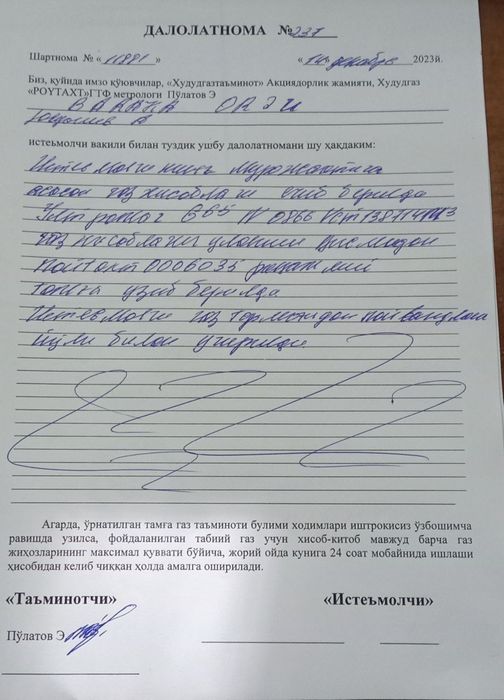 ДАЛОЛАТНОМА № 237
Шартнома № « 11881 » « 14 » декабрь 2023й.
Биз, қуйида имзо қўювчилар, «Худудгазтаъминот» Акциядорлик жамияти, Худудгаз
«POYTAXT»ГТФ метрологи Пўлатов Э
истеъмолчи вакили билан туздик ушбу далолатномани шу ҳақдаким:
Истемолчининг мурожаатига
асосан газ хисоблагич ечиб берилди
G65 N 0866
газ хисоблагич уланиш қисмидан
Пойтахт 0006035 рақамли
тамға узиб берилди
Истемолчи газ тармоғидан пайвандлаш
йўли билан учирилди
Агарда, ўрнатилган тамға газ таъминоти булими ходимлари иштрокисиз ўзбошимча
равишда узилса, фойдаланилган табиий газ учун хисоб-китоб мавжуд барча газ
жиҳозларининг максимал қуввати бўйича, жорий ойда кунига 24 соат мобайнида ишлаши
ҳисобидан келиб чиққан ҳолда амалга оширилади.
«Таъминотчи» «Истеъмолчи»
Пўлатов Э